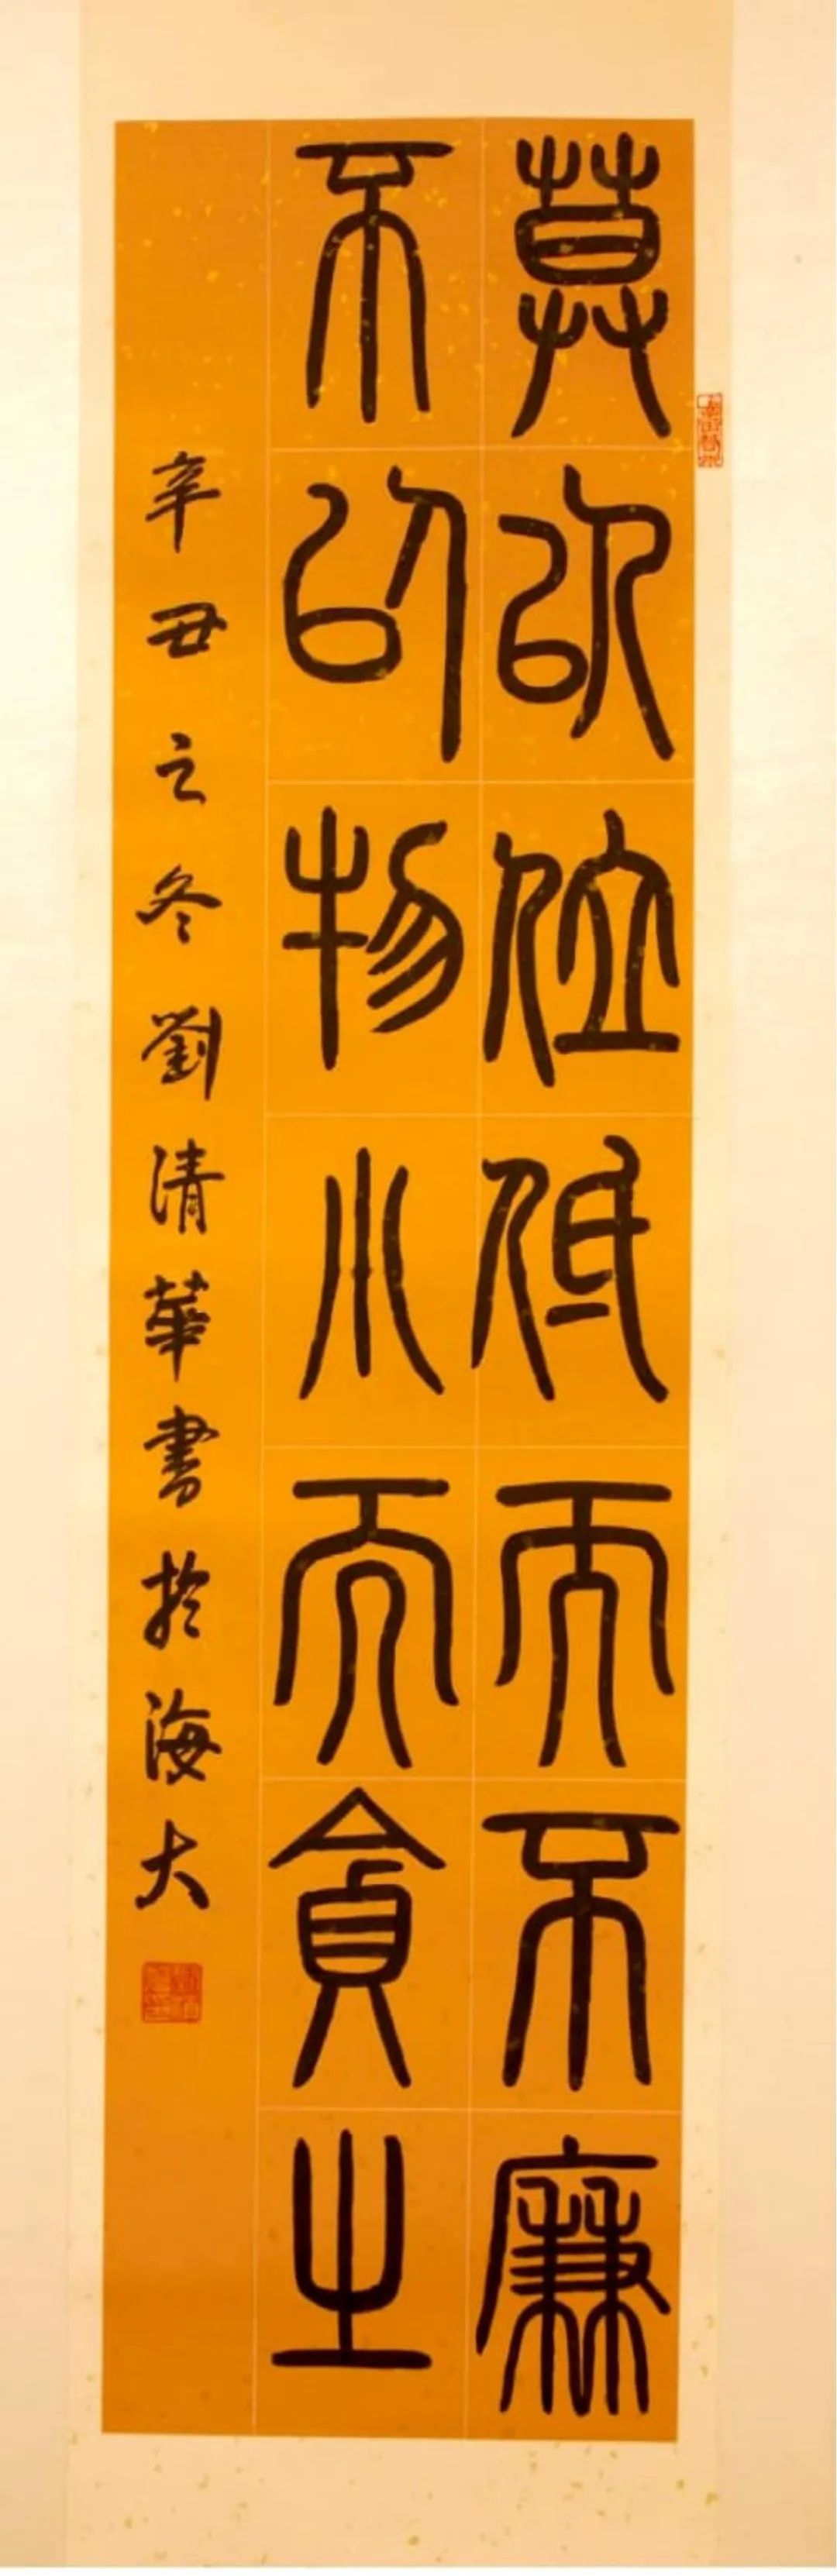 莫以位低而不廉
不以物小而貪之
辛丑之冬劉清華書於海大